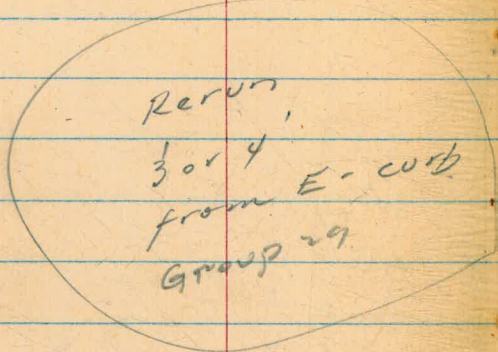 Rerun
3 or 4'
from E-curb
Group 29